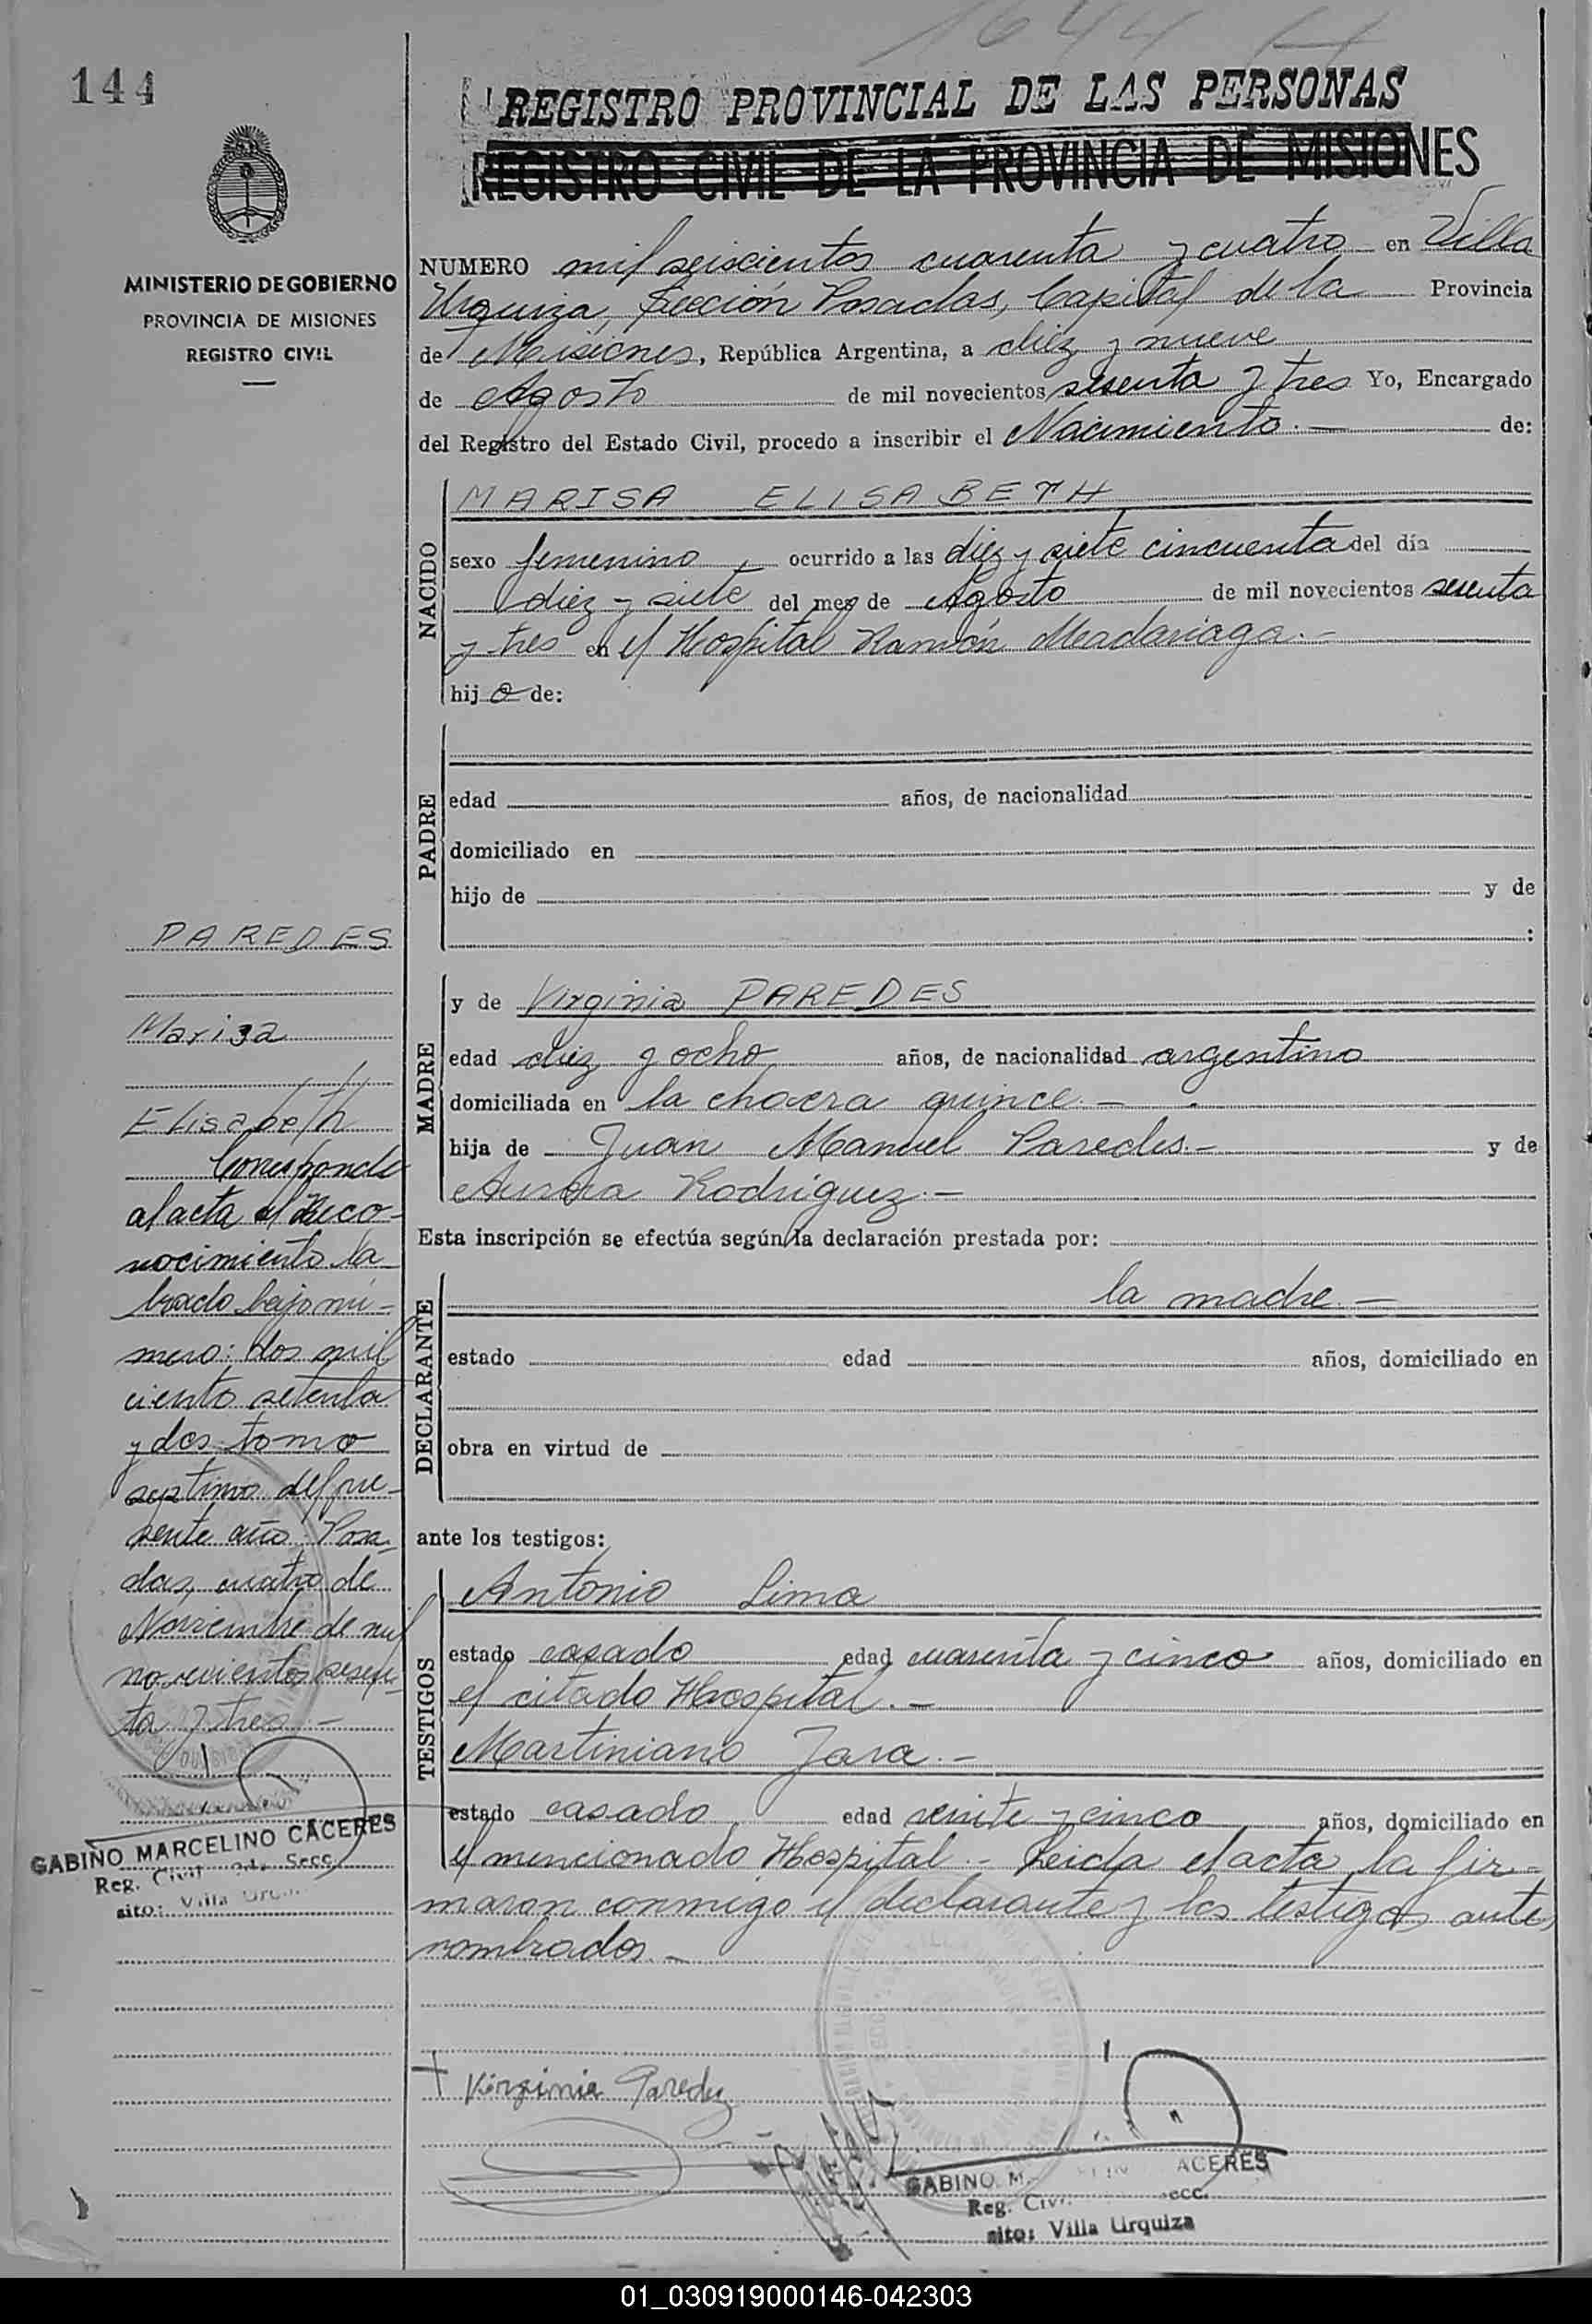 1644
144
REGISTRO PROVINCIAL DE LAS PERSONAS
REGISTRO CIVIL DE LA PROVINCIA DE MISIONES
MINISTERIO DE GOBIERNO
PROVINCIA DE MISIONES
REGISTRO CIVIL
NUMERO mil seiscientos cuarenta y cuatro en Villa
Urquiza, Sección Posadas, Capital de la Provincia
de Misiones, República Argentina, a diez y nueve
de Agosto de mil novecientos sesenta y tres Yo, Encargado
del Registro del Estado Civil, procedo a inscribir el Nacimiento.— de:
NACIDO
MARISA ELISABETH
sexo femenino, ocurrido a las diez y siete cincuenta del día
diez y siete del mes de Agosto de mil novecientos sesenta
y tres en el Hospital Ramón Madariaga.-
hija de:
PADRE
edad años, de nacionalidad
domiciliado en
hijo de y de
:
MADRE
y de Virginia PAREDES
edad diez y ocho años, de nacionalidad argentino
domiciliada en la chacra quince.—
hija de Juan Manuel Paredes.- y de
Aurora Rodriguez.-
Esta inscripción se efectúa según la declaración prestada por:
DECLARANTE
la madre.—
estado edad años, domiciliado en
obra en virtud de
ante los testigos:
TESTIGOS
Antonio Lima
estado casado edad cuarenta y cinco años, domiciliado en
el citado Hospital.-
Martiniano Jara.-
estado casado edad veinte y cinco años, domiciliado en
el mencionado Hospital.- Leida el acta, la fir-
maron conmigo el declarante y los testigos ante
nombrados.-
PAREDES
Marisa
Elisabeth
Corresponde
al acta el Reco-
nocimiento la
brado bajo nú-
mero: dos mil
ciento setenta
y dos tomo
septimo del pre-
sente año. Posa-
das, cuatro de
Noviembre de mil
novecientos sesen-
ta y tres.-
GABINO MARCELINO CACERES
Reg. Civil 2da. Secc.
sito: Villa Urq
+ Virginia Paredez
GABINO M ACERES
Reg. Civ ecc.
sito: Villa Urquiza
01_030919000146-042303